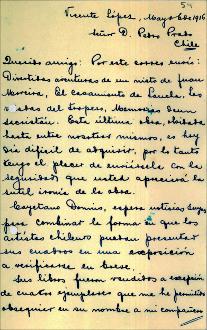 54
Vicente López, Mayo 6 de 1916
Señor D. Pedro Prado
Chile
Querido amigo: Por este correo envío:
Divertidas aventuras de un nieto de Juan
Moreira, El casamiento de Laucha, Los
del tropero, Memorias de un
secretario. Esta última obra,
hasta entre nosotros mismos, es hoy
día difícil de adquirir, por lo tanto
tengo el placer de enviársela con la
seguridad que usted apreciará la
sutil ironía de la obra.
Cayetano Donnis, espera noticias suyas
para combinar la forma en que los
artistas chilenos puedan presentar
sus cuadros en una exposición
a verificarse en breve.
Sus libros fueron vendidos a excepción
de cuatro ejemplares que me he permitido
obsequiar en su nombre a mi compañero